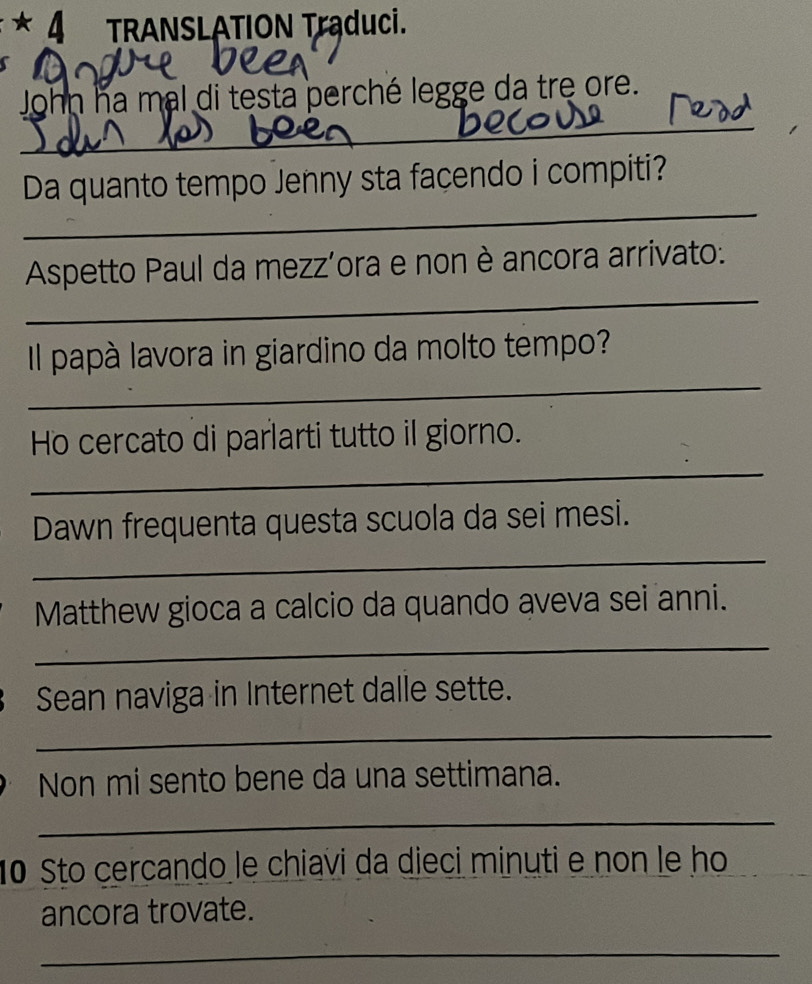 ★ 4 TRANSLATION Traduci.
been
John ha mal di testa perché legge da tre ore.
John has been becouse read
Da quanto tempo Jenny sta facendo i compiti?
Aspetto Paul da mezz'ora e non è ancora arrivato.
Il papà lavora in giardino da molto tempo?
Ho cercato di parlarti tutto il giorno.
Dawn frequenta questa scuola da sei mesi.
Matthew gioca a calcio da quando aveva sei anni.
Sean naviga in Internet dalle sette.
Non mi sento bene da una settimana.
10 Sto cercando le chiavi da dieci minuti e non le ho
ancora trovate.